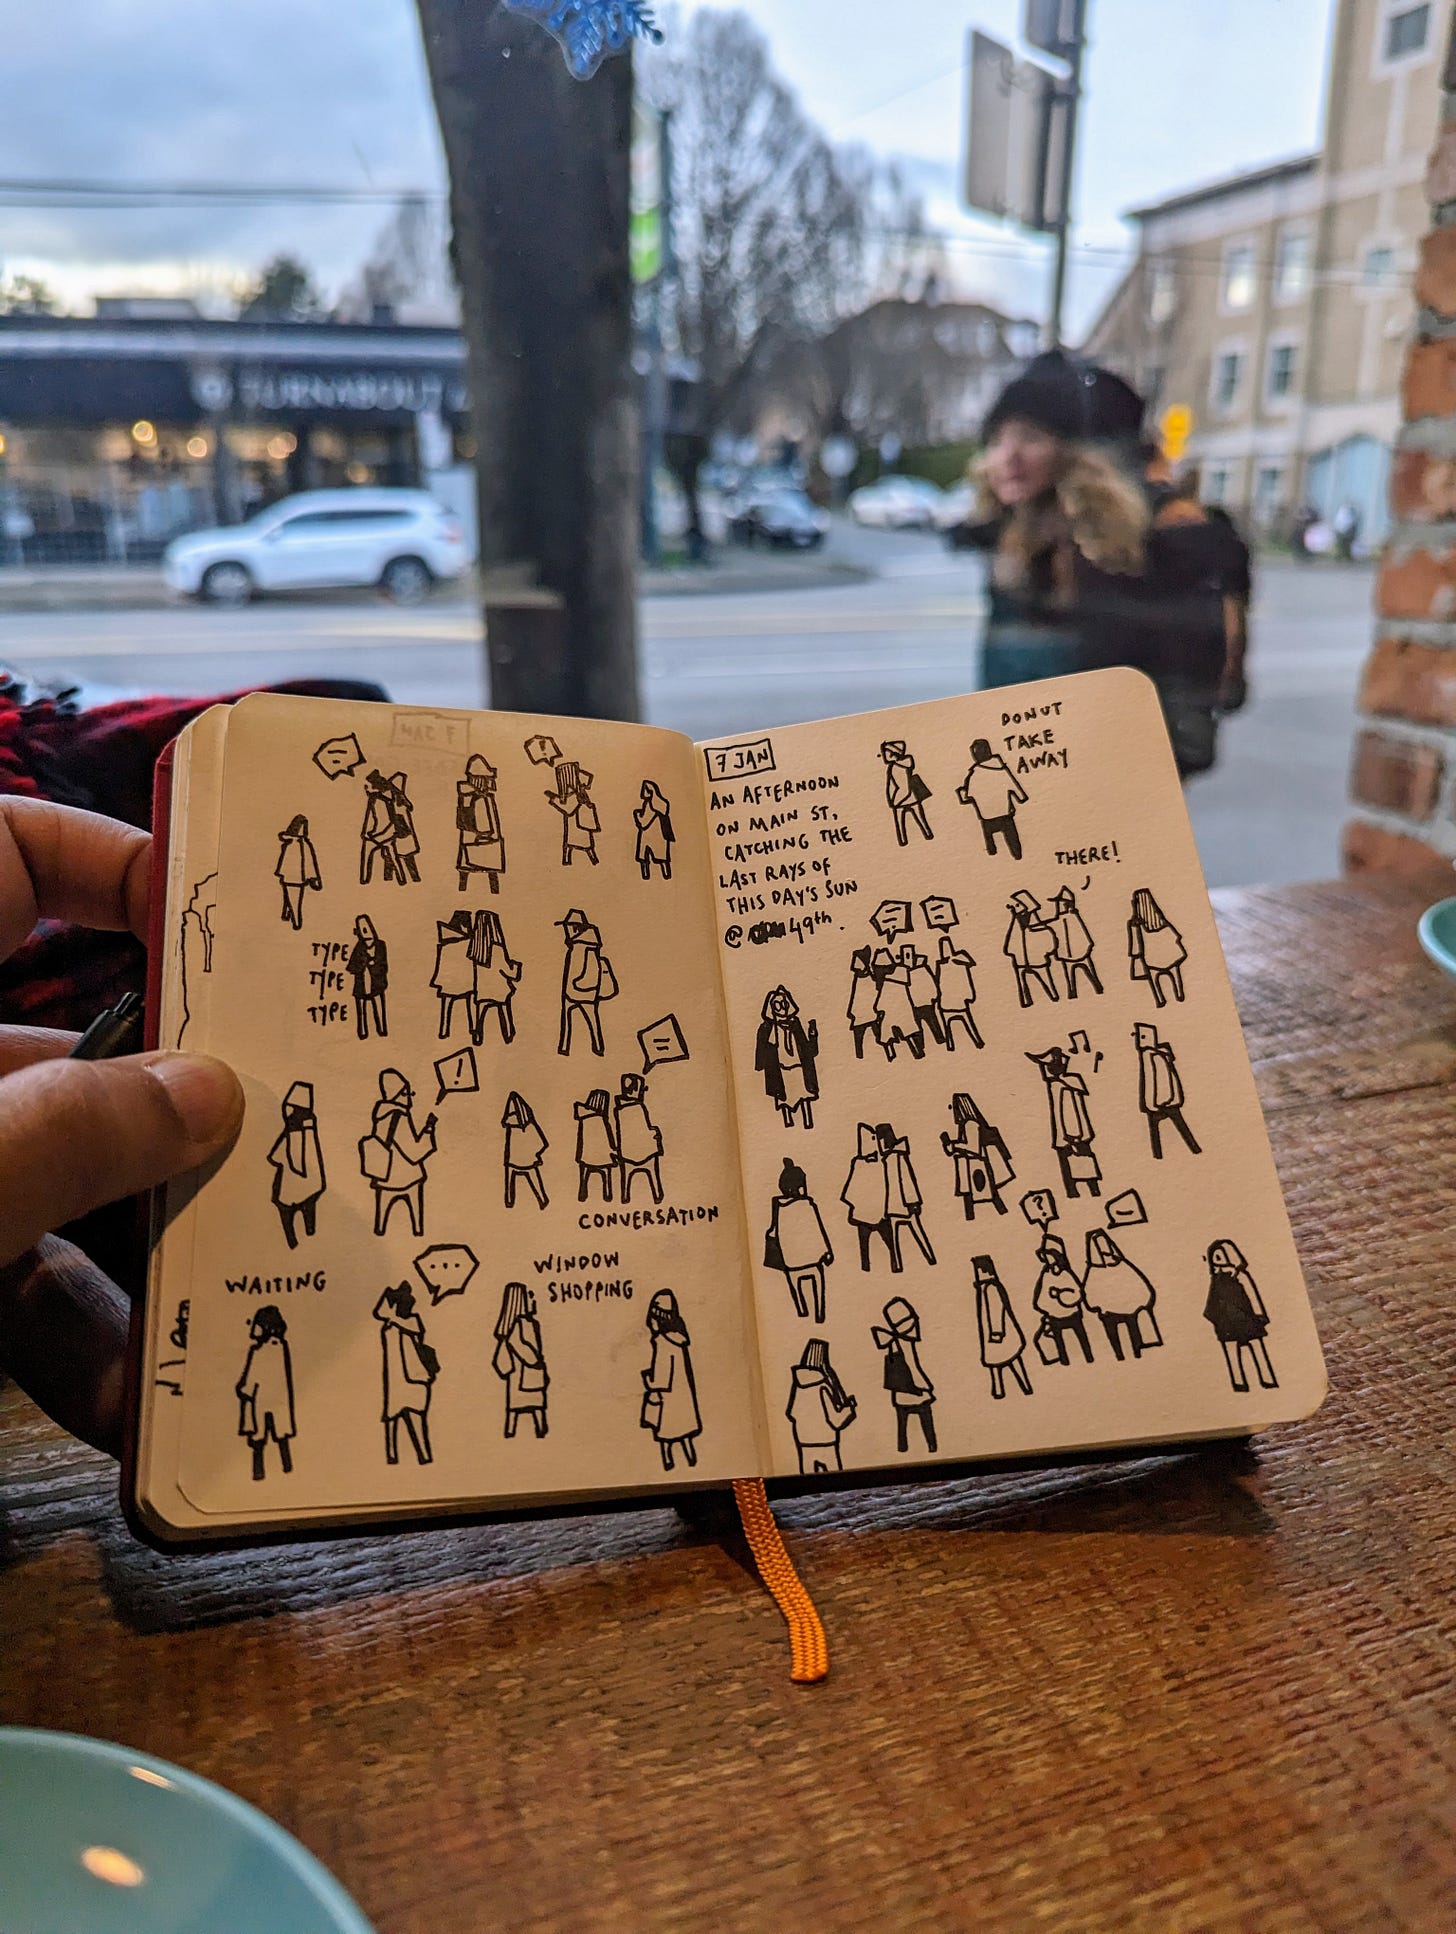 TURNABOUT
TYPE
TYPE
TYPE
!
!
CONVERSATION
WAITING
...
WINDOW
SHOPPING
7 JAN
AN AFTERNOON
ON MAIN ST,
CATCHING THE
LAST RAYS OF
THIS DAY'S SUN
@ 49th.
DONUT
TAKE
AWAY
THERE!
?